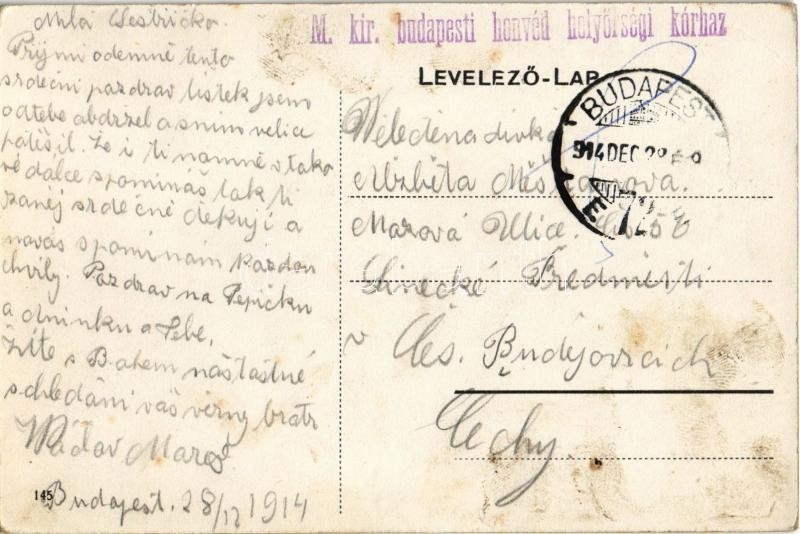 Milá Sestřičko.
Příjmi odemně tento
srdečni pozdrav listek jsem
odtebe abdržel a snim velice
patěšil. Že i ti namně v tako
vé dálce spomináš tak ti
zaněj srdečně děkuji a
navás spominám každou
chvíly. Pozdrav na Pepičku
a a Tebe,
Žijte s Bahem našťastné
schledáni váš věrny bratr
Václav
Budapest. 28/12 1914
145
M. kir. budapesti honvéd helyőrségi kórház
LEVELEZŐ-LAP
BUDAPEST
914 DEC 28
72
E
Alžběta
Marová Ulice.
Linecké Předměsti
v Čes. Budějovicich
Čechy.